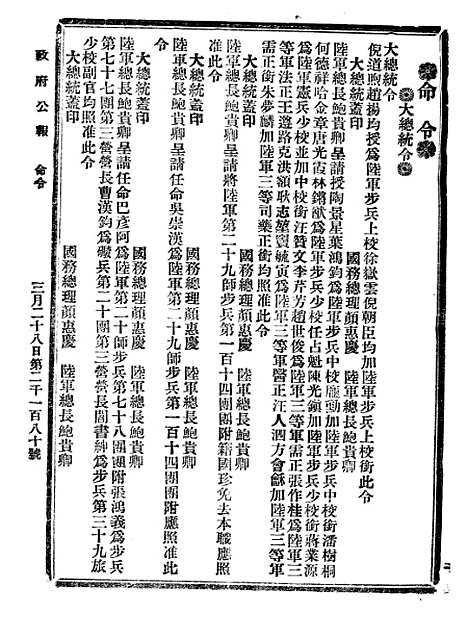 命令
大總統令
大總統令
倪道煦趙揚均授爲陸軍步兵上校徐嶽雲倪朝臣均加陸軍步兵上校銜此令
大總統蓋印
國務總理顏惠慶 陸軍總長鮑貴卿
陸軍總長鮑貴卿呈請授陶景星葉鴻鈞爲陸軍步兵中校龐勁加陸軍步兵中校銜潘樹桐
何德祥哈金章唐光霞林鏘猷爲陸軍步兵少校任占魁陳光鎮加陸軍步兵少校銜蔣業源
爲陸軍憲兵少校並加中校銜汪贊文李芹芳趙世俊爲陸軍三等軍需正張作桂爲陸軍三
等軍法正王遵路克洪額耿志堃竇毓寅爲陸軍三等軍醫正汪人泗方會龢加陸軍三等軍
需正銜朱夢麟加陸軍三等司藥正銜均照准此令
大總統蓋印
國務總理顏惠慶 陸軍總長鮑貴卿
陸軍總長鮑貴卿呈請將陸軍第二十九師步兵第一百十四團團附籍國珍免去本職應照
准此令
大總統蓋印
國務總理顏惠慶 陸軍總長鮑貴卿
陸軍總長鮑貴卿呈請任命吳崇漢爲陸軍第二十九師步兵第一百十四團團附應照准此
令
大總統蓋印
國務總理顏惠慶 陸軍總長鮑貴卿
陸軍總長鮑貴卿呈請任命巴彥阿爲陸軍第二十師步兵第七十八團團附張鴻義爲步兵
第七十七團第三營營長曹漢鈞爲礮兵第二十團第三營營長閻書紳爲步兵第三十九旅
少校副官均照准此令
大總統蓋印
國務總理顏惠慶 陸軍總長鮑貴卿
政府公報 命令
三月二十八日第二千一百八十號